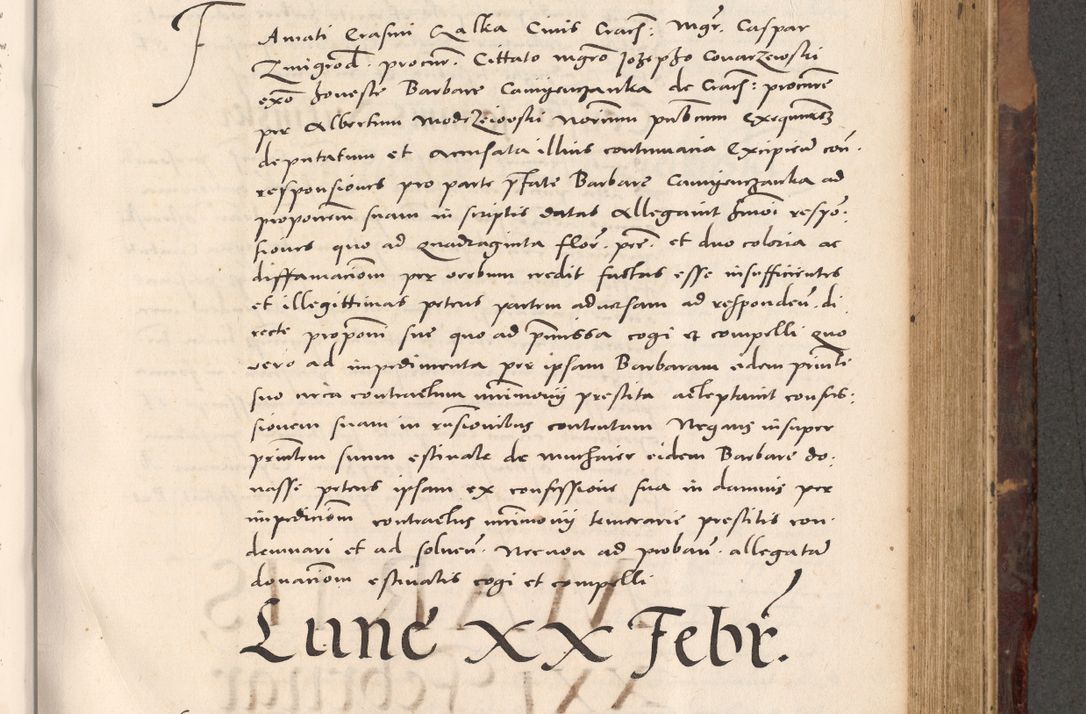 Amati Erasmi Kalka Civis Crac: mgr. Caspar
Zmigrod. procur. Cittato mgro Jozepho Conarzewski
exo honeste Barbare Camyenczanka de Crac: procure
per Albertum Modrzeiowski Norium publicum Exequutarum
deputatum et Accusata illius contumacia Excipien con.
responsiones pro parte pfate Barbare Camyenczanka ad
proponem suam in scriptis datas Allegavit hmoi respo:
siones quo ad Quadraginta flor. pec. et duo coloria ac
diffamaciom per verbum credit factas esse insufficientes
et illegittimas petens partem adversam ad responden. di
recte propom sue quo ad pmissa cogi et compelli Quo
vero ad impedimenta per ipsam Barbaram eidem princli
suo circa contractum mrimonij prestita acceptavit confes:
sionem suam in rnsionibus contentam Negans insuper
princlem suum estivale de muchaier eidem Barbare do:
nasse petens ipsam ex confessione sua in damnis per
impediciom contractus mrimonij temerarie prestitis con.
demnari et ad solven. Necnon ad proban. allegatam
donaciom estivalis cogi et compelli
Lune XX Febr.